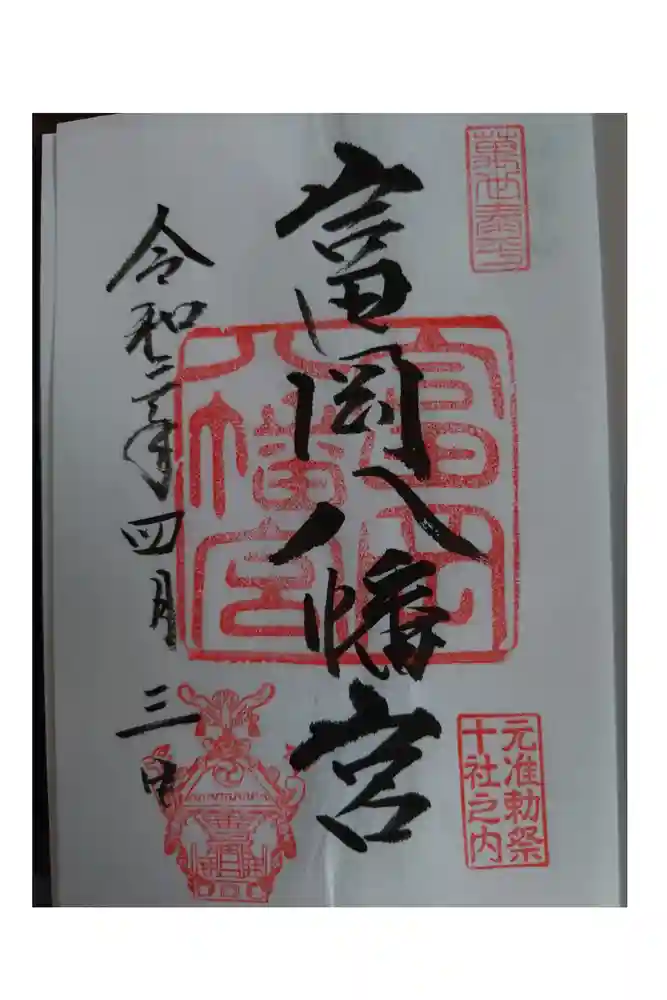 萬世泰平
富岡八幡宮
富岡
八幡宮
元准勅祭
十社之内
令和二年四月三日